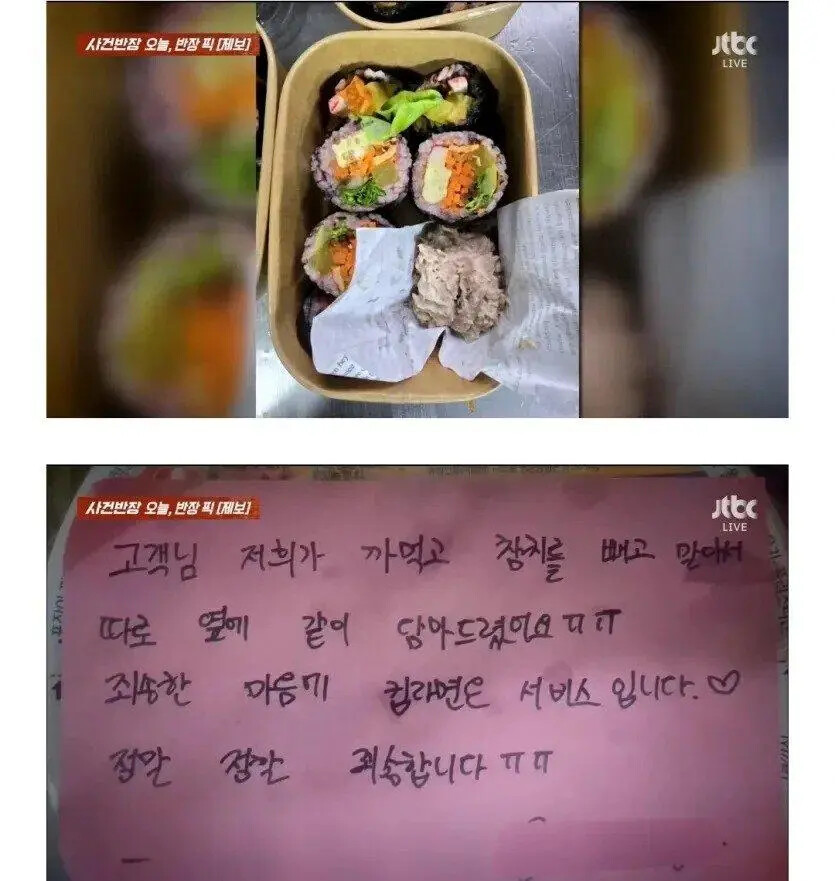 사건반장 오늘, 반장 픽 [제보]
jtbc
LIVE
사건반장 오늘, 반장 픽 [제보]
jtbc
LIVE
고객님 저희가 까먹고 참치를 빼고 말아서
따로 옆에 같이 담아드렸어요ㅠㅠ
죄송한 마음에 컵라면은 서비스 입니다.♡
정말 정말 죄송합니다 ㅠㅠ